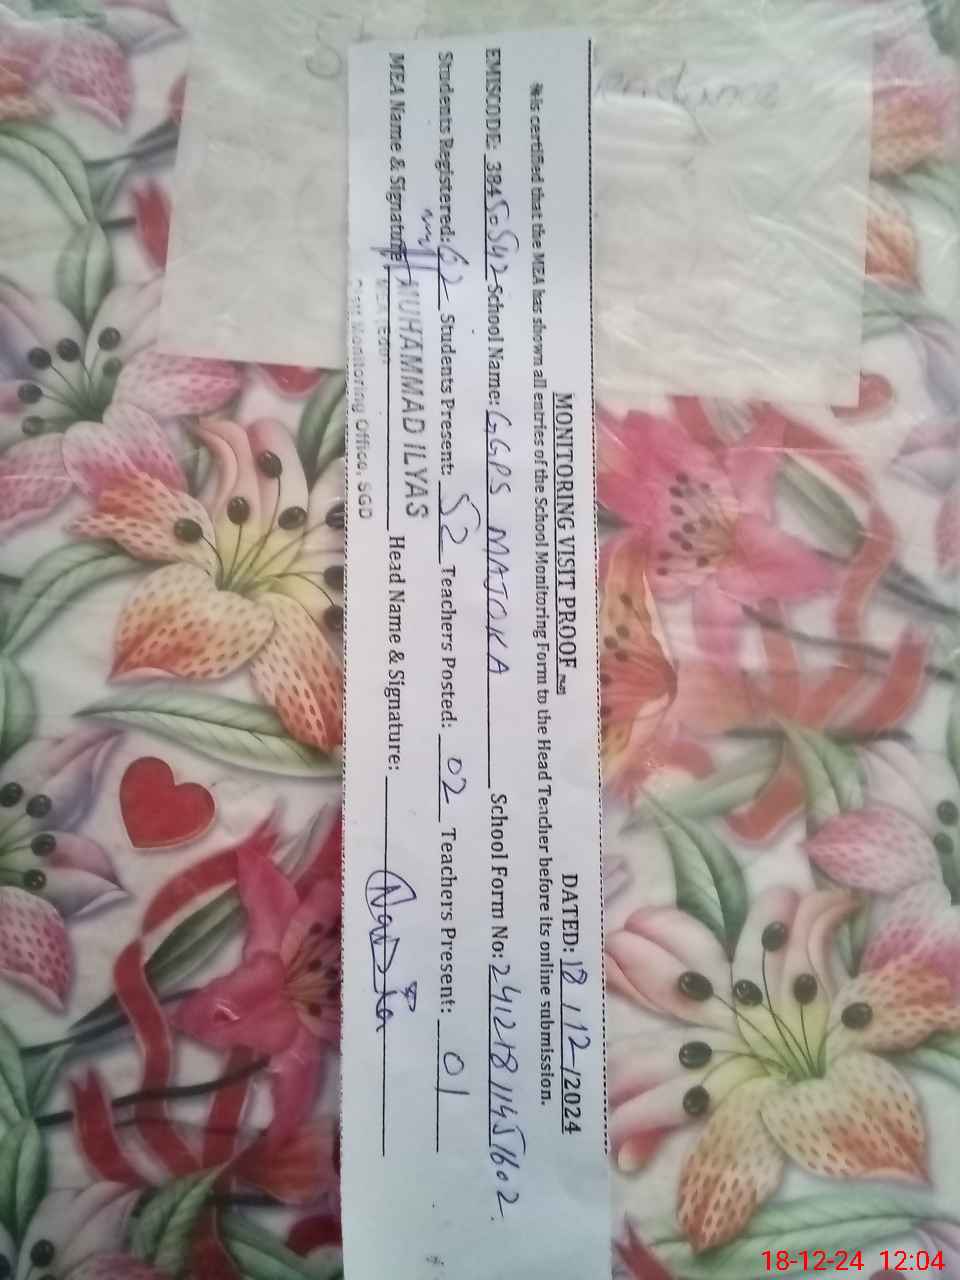 MONITORING VISIT PROOF DATED: 18/12/2024
is certified that the MEA has shown all entries of the School Monitoring Form to the Head Teacher before its online submission.
EMISCODE: 38450542 School Name: GGPS MAJOKA School Form No: 24121811451602
Students Registered: 62 Students Present: 52 Teachers Posted: 02 Teachers Present: 01
MEA Name & Signature MUHAMMAD ILYAS Head Name & Signature: Nadia
Monitoring Office, SGD
18-12-24 12:04